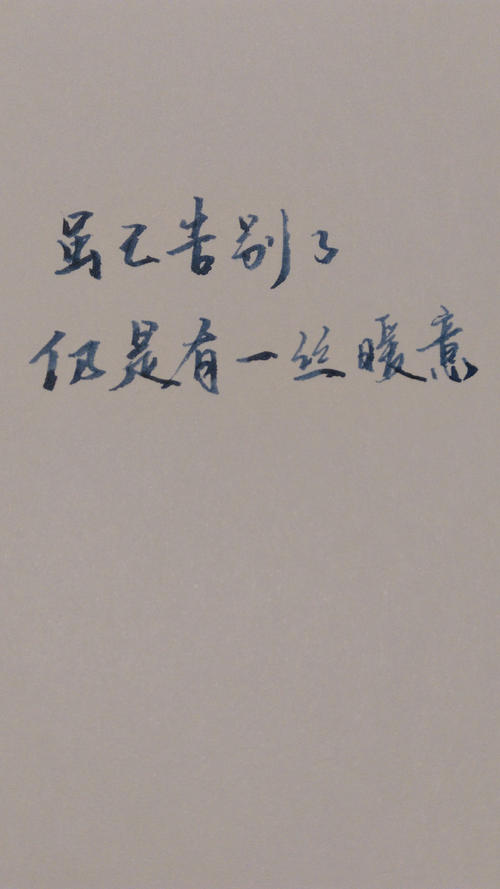 虽已告别了
仍是有一丝暖意